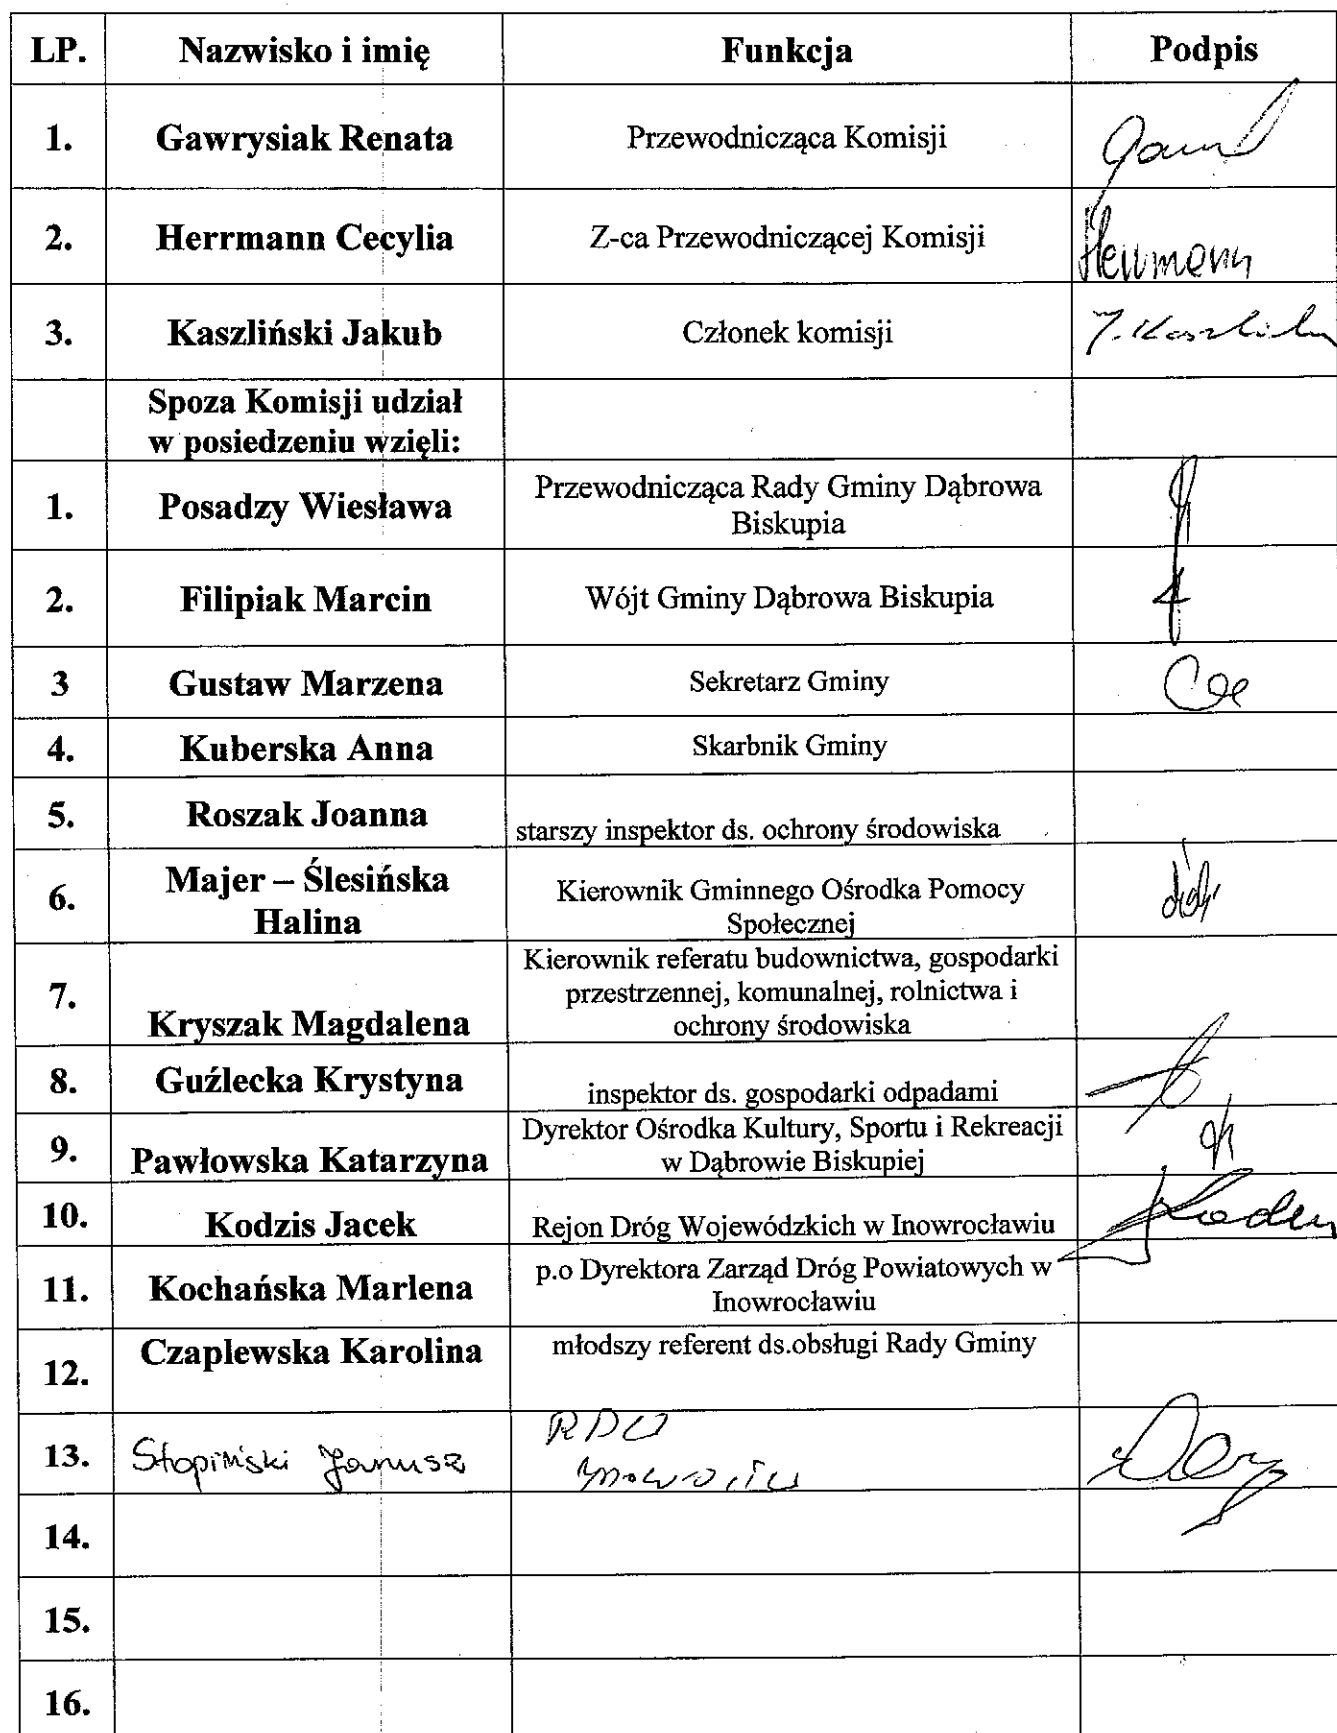 LP. Nazwisko i imię Funkcja Podpis
1. Gawrysiak Renata Przewodnicząca Komisji
2. Herrmann Cecylia Z-ca Przewodniczącej Komisji Herrmann
3. Kaszliński Jakub Członek komisji J. Kaszliński
Spoza Komisji udział
w posiedzeniu wzięli:
1. Posadzy Wiesława Przewodnicząca Rady Gminy Dąbrowa
Biskupia
2. Filipiak Marcin Wójt Gminy Dąbrowa Biskupia
3 Gustaw Marzena Sekretarz Gminy
4. Kuberska Anna Skarbnik Gminy
5. Roszak Joanna starszy inspektor ds. ochrony środowiska
6. Majer – Ślesińska
Halina
Kierownik Gminnego Ośrodka Pomocy
Społecznej
7. Kryszak Magdalena
Kierownik referatu budownictwa, gospodarki
przestrzennej, komunalnej, rolnictwa i
ochrony środowiska
8. Guźlecka Krystyna inspektor ds. gospodarki odpadami
9. Pawłowska Katarzyna
Dyrektor Ośrodka Kultury, Sportu i Rekreacji
w Dąbrowie Biskupiej
10. Kodzis Jacek Rejon Dróg Wojewódzkich w Inowrocławiu
11. Kochańska Marlena
p.o Dyrektora Zarząd Dróg Powiatowych w
Inowrocławiu
12. Czaplewska Karolina młodszy referent ds.obsługi Rady Gminy
13. Stopiński Janusz RDW
14.
15.
16.